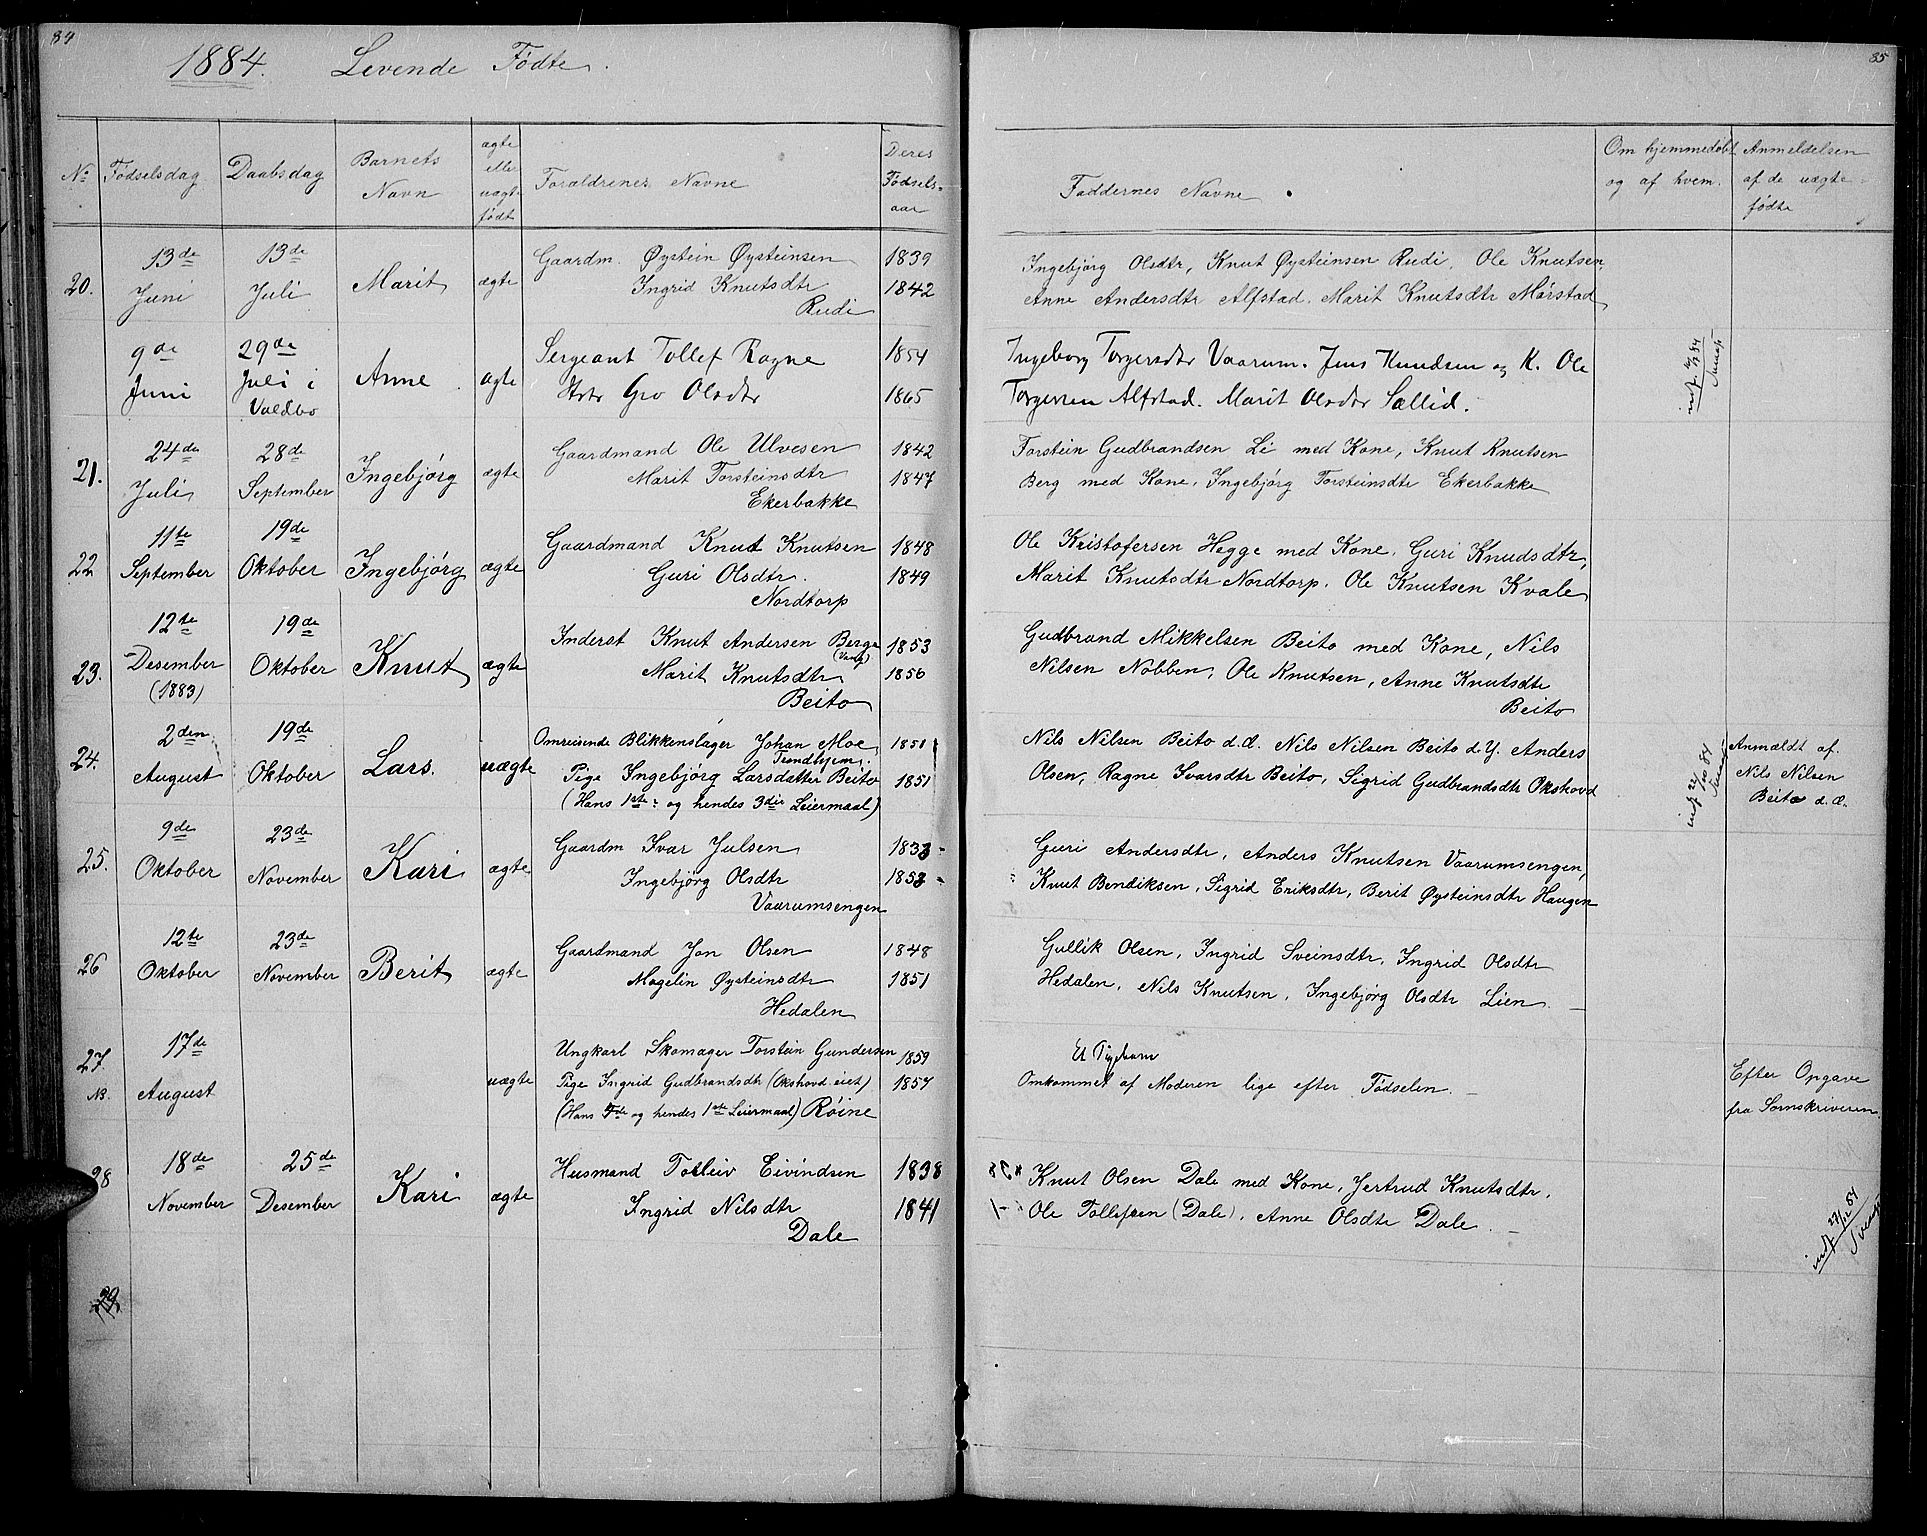 84
1884. Levende Fødte.
85
No Fødselsdag Daabsdag Barnets Navn ægte eller uægte født Forældrenes Navne Deres Fødsels-aar
Faddernes Navne Om hjemmedøbt og af hvem. Anmeldelsen af de uægte fødte
20. 13de Juni 13de Juli Marit ægte
Gaardm. Øystein Øysteinsen 1839
Ingrid Knutsdtr 1842
Rudi
Ingebjørg Olsdtr, Knut Øysteinsen Rudi, Ole Knutsen,
Anne Andersdtr Alfstad. Marit Knutsdtr Mørstad
9de Juni 29de Juli i Valdbo Anne ægte
Sergeant Tollef Rogne 1854
Gro Olsdtr 1865
Ingeborg Torgersdtr Vaarum. Jens Knudsen og K. Ole
Torgersen Alfstad. Marit Olsdtr Sællid.
21. 24de Juli 28de September Ingebjørg ægte
Gaardmand Ole Ulvesen 1842
Marit Torsteinsdtr 1847
Ekerbakke
Torstein Gudbrandsen Li med Kone, Knut Knutsen
Berg med Kone, Ingebjørg Torsteinsdtr Ekerbakke
22 11te September 19de Oktober Ingebjørg ægte
Gaardmand Knut Knutsen 1848
Guri Olsdtr. 1849
Nordtorp
Ole Kristofersen Hegge med Kone. Guri Knudsdtr,
Marit Knutsdtr Nordtorp. Ole Knutsen Kvale
23. 12te Desember (1883) 19de Oktober Knut ægte
Inderst Knut Andersen Berge 1853
(Vang)
Marit Knutsdtr 1856
Beito
Gudbrand Mikkelsen Beito med Kone, Nils
Nilsen Nobben, Ole Knutsen, Anne Knutsdtr
Beito
24. 2den August 19de Oktober Lars. uægte
Omreisende Blikkenslager Johan Moe 1851
Trondhjem.
Pige Ingebjørg Larsdatter Beito 1851
(Hans 1ste og hendes 3die Leiermaal)
Nils Nilsen Beito d.æ. Nils Nilsen Beito d.y. Anders
Olsen, Ragne Ivarsdtr Beito, Sigrid Gudbrandsdtr Okshovd
indf. 22/10 84
Anmældt af.
Nils Nilsen
Beito d.æ.
25. 9de Oktober 23de November Kari ægte
Gaardm Ivar Julsen 1833
Ingebjørg Olsdtr 1853
Vaarumsengen
Guri Andersdtr, Anders Knutsen Vaarumsengen,
Knut Bendiksen, Sigrid Eriksdtr, Berit Øysteinsdtr Haugen
26 12te Oktober 23de November Berit ægte
Gaardmand Jon Olsen 1848
Magelin Øysteinsdtr 1851
Hedalen
Gullik Olsen, Ingrid Sveinsdtr, Ingrid Olsdtr
Hedalen, Nils Knutsen, Ingebjørg Olsdtr Lien.
27. NB. 17de August uægte
Ungkarl Skomager Torstein Gundersen 1859
Pige Ingrid Gudbrandsdtr (Okshovd eiet) 1857
(Hans og hendes 1ste Leiermaal) Røine
Et Pigebarn
Omkommet af Moderen lige efter Fødselen.
Efter Opgave
fra Sorenskriveren
28 18de November 25de Desember Kari ægte
Husmand Tolleiv Eivindsen 1838
Ingrid Nilsdtr 1841
Dale
Knut Olsen Dale med Kone, Jertrud Knutsdtr,
Ole Tollefsen (Dale), Anne Olsdtr Dale.
29.